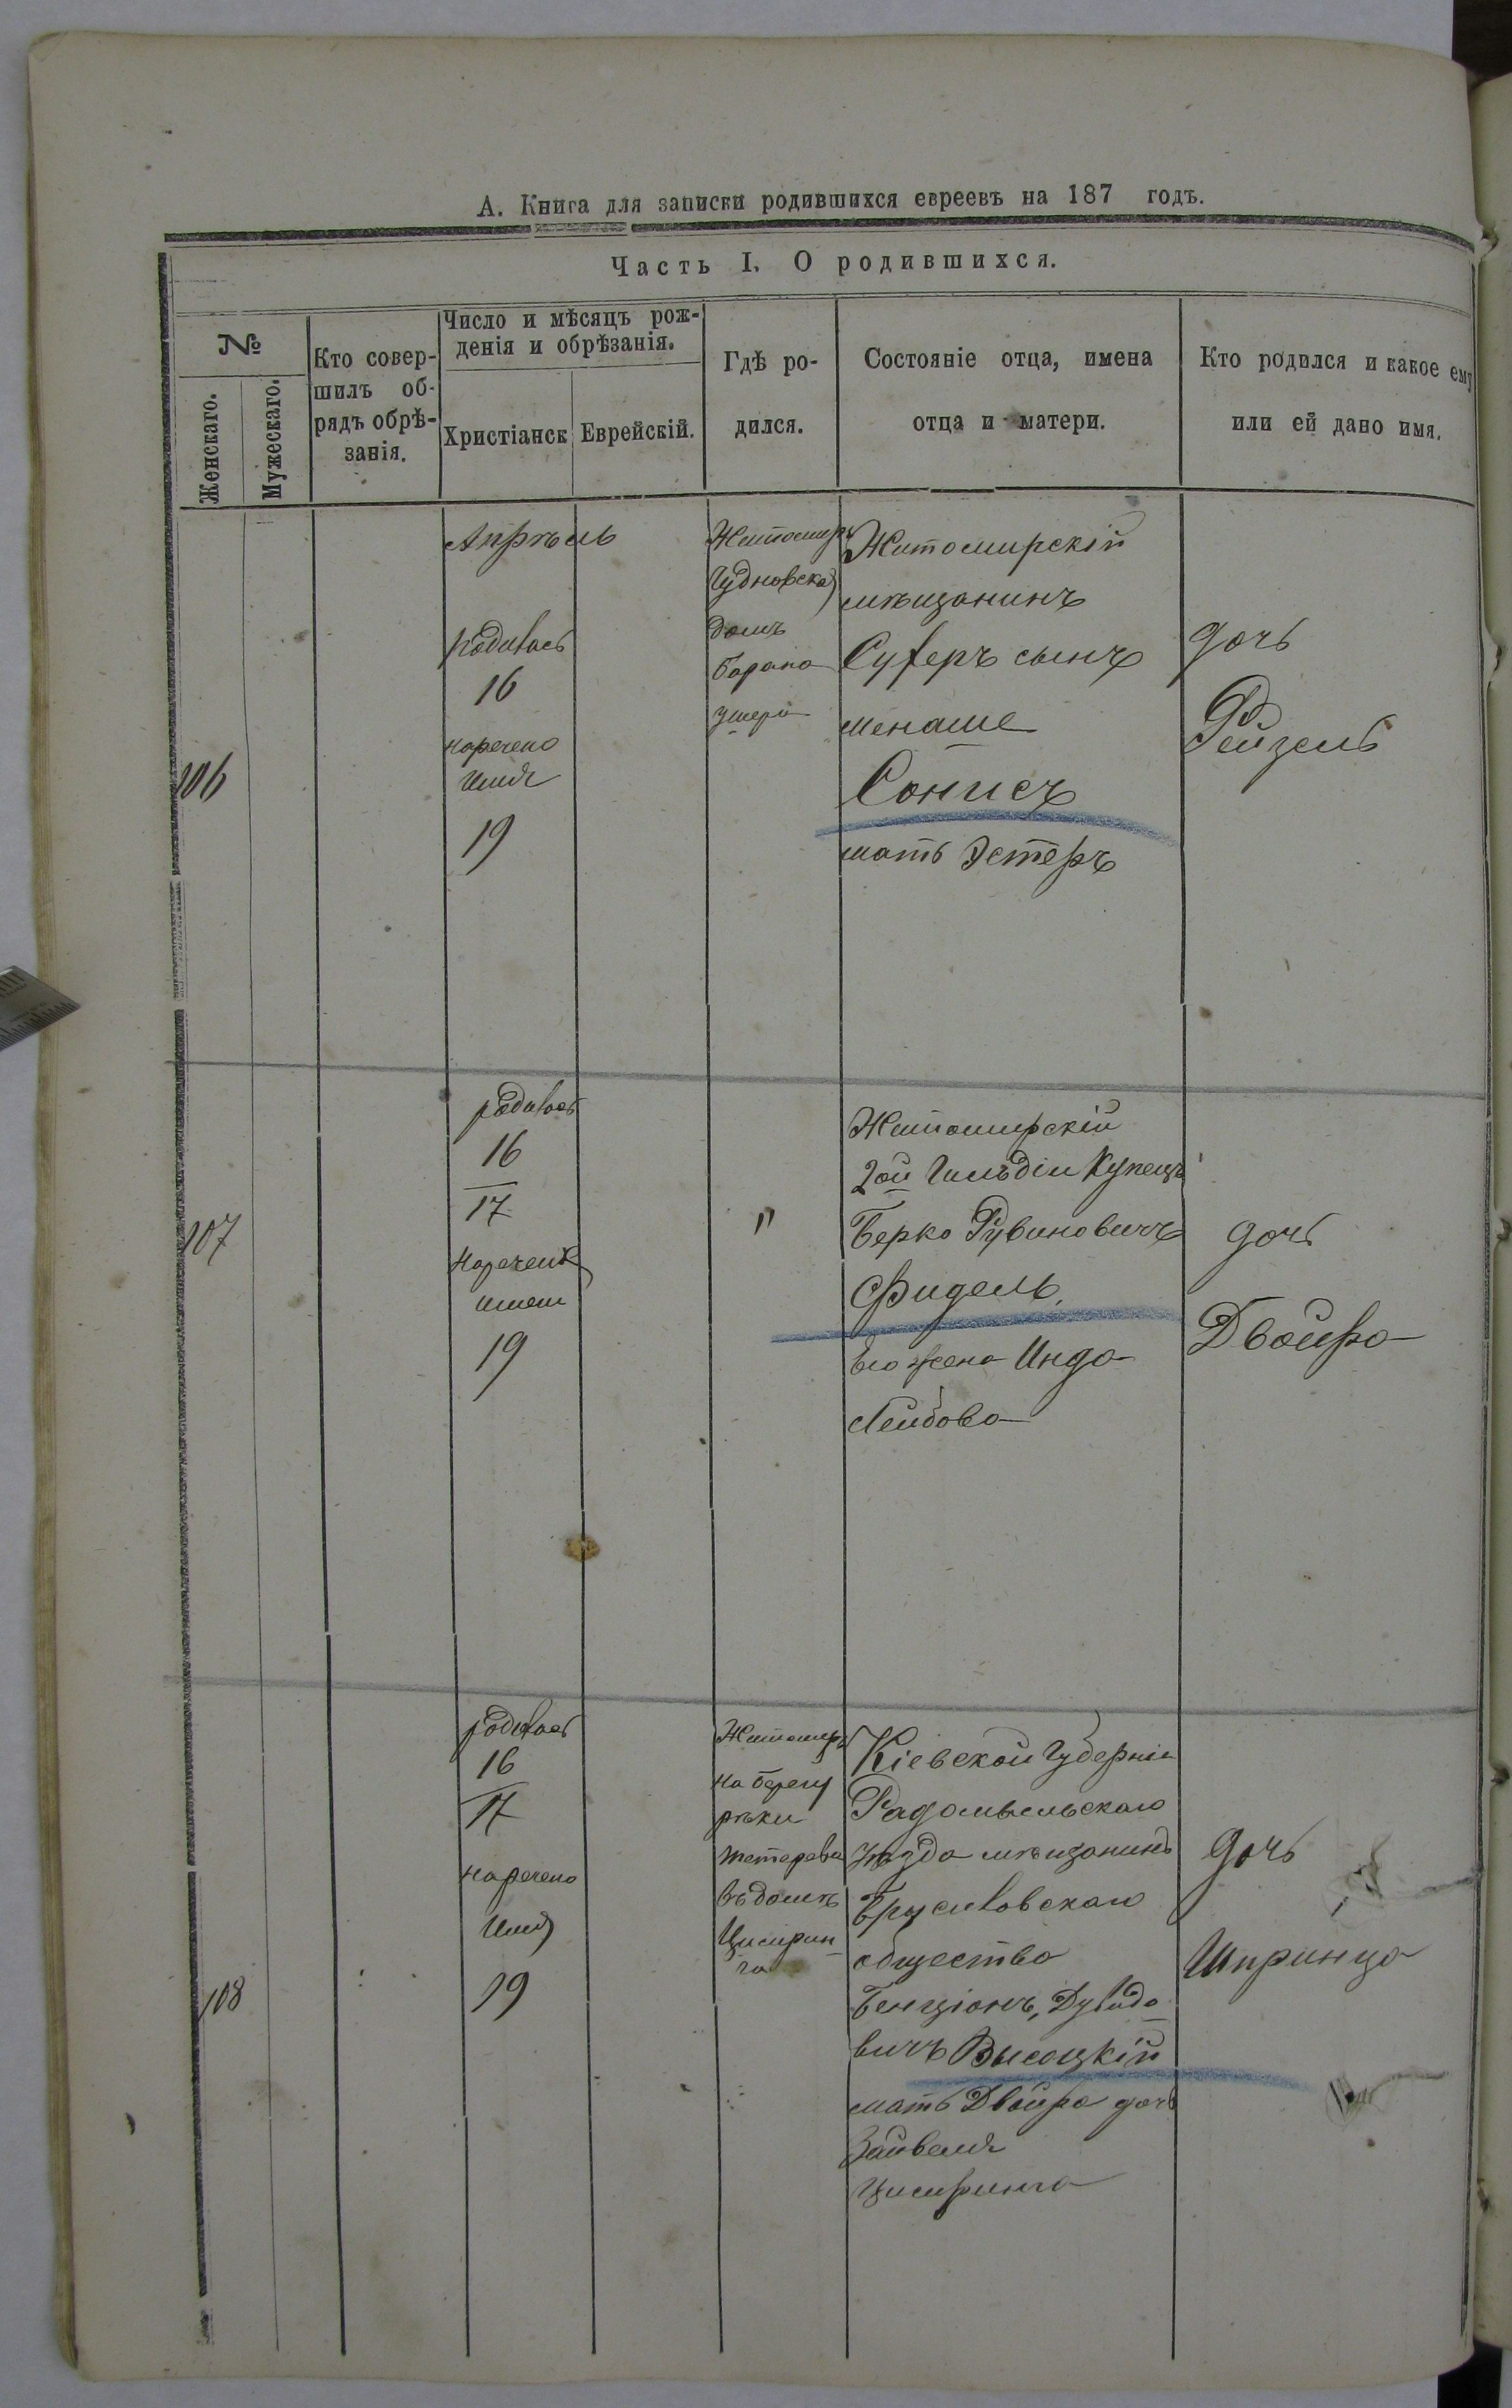 А. Книга для записки родившихся евреевъ на 187 годъ.
Часть I. О родившихся.
№
Женскаго.
Мужескаго.
Кто совер-
шилъ об-
рядъ обрѣ-
занія.
Число и мѣсяцъ рож-
денія и обрѣзанія.
Христіанск
Еврейскій.
Гдѣ ро-
дился.
Состояніе отца, имена
отца и матери.
Кто родился и какое ему
или ей дано имя.
106
Апрѣль
родилась
16
наречено
имя
19
Житомиръ
Чудновска
домъ
Барана
Житомирскій
мѣщанинъ
Суферъ сынъ
Менаше
Сонисъ
мать Эстеръ
дочь
Рейзель
107
родилась
16
17
имя
19
"
Житомирскій
2ой Гильдіи Купецъ
Берко Рувиновичъ
Фидель,
его жена Инда
Лейбова
дочь
Двойра
108
родилась
16
17
наречено
имя
19
Житомиръ
на берегу
рѣки
Тетерева
въ домѣ
Цимрин
га
Кіевской Губерніи
Радомысльскаго
уѣзда мѣщанинъ
Брусиловскаго
общества
Бенціонъ, Дувидо
вичъ Высоцкій
мать Двойра дочь
Зайвеля
Цимринга
дочь
Шпринца